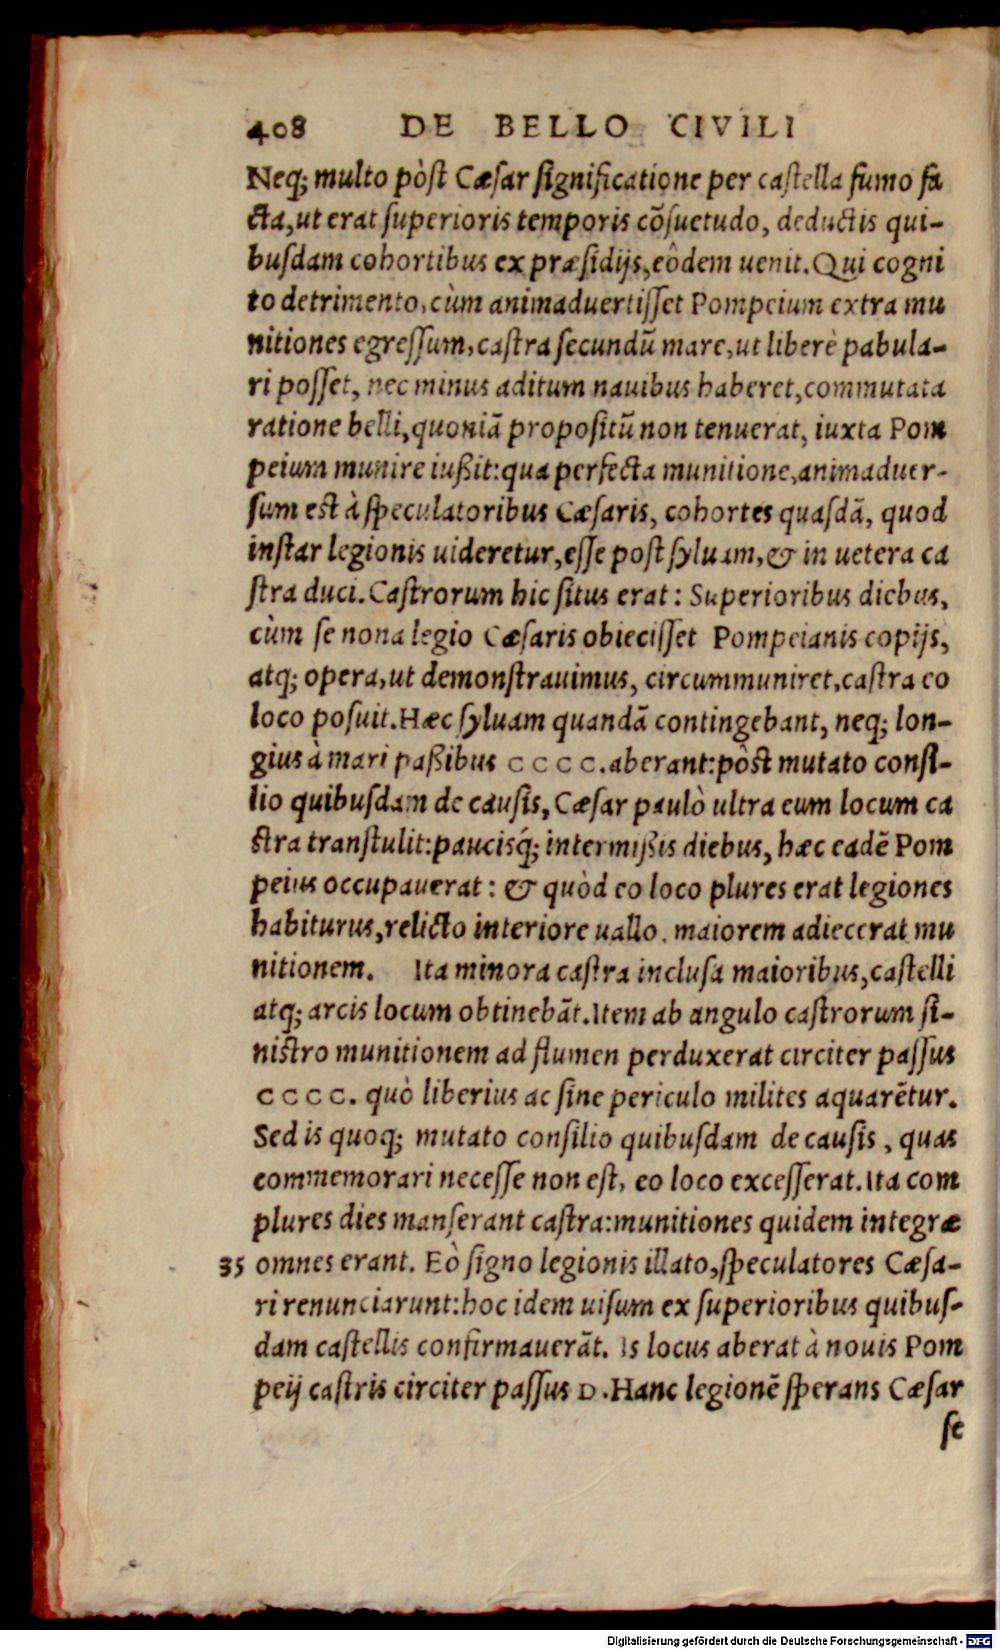 408 DE BELLO CIVILI
Neq; multo pòst Cæsar significatione per castella fumo fa
cta, ut erat superioris temporis cõsuetudo, deductis qui-
busdam cohortibus ex præsidijs, eôdem uenit. Qui cogni
to detrimento, cùm animaduertisset Pompeium extra mu
nitiones egressum, castra secundũ mare, ut liberè pabula-
ri posset, nec minus aditum nauibus haberet, commutata
ratione belli, quoniã propositũ non tenuerat, iuxta Pom
peium munire iußit: qua perfecta munitione, animaduer-
sum est à speculatoribus Cæsaris, cohortes quasdã, quod
instar legionis uideretur, esse post syluam, & in uetera ca
stra duci. Castrorum hic situs erat: Superioribus diebus,
cùm se nona legio Cæsaris obiecisset Pompeianis copijs,
atq; opera, ut demonstrauimus, circummuniret, castra eo
loco posuit. Hæc syluam quandã contingebant, neq; lon-
gius à mari paßibus CCCC. aberant: pòst mutato consi-
lio quibusdam de causis, Cæsar paulò ultra eum locum ca
stra transtulit: paucisq́; intermißis diebus, hæc eadẽ Pom
peius occupauerat: & quòd eo loco plures erat legiones
habiturus, relicto interiore uallo, maiorem adiecerat mu
nitionem. Ita minora castra inclusa maioribus, castelli
atq; arcis locum obtinebãt. Item ab angulo castrorum si-
nistro munitionem ad flumen perduxerat circiter passus
CCCC. quò liberius ac sine periculo milites aquarẽtur.
Sed is quoq; mutato consilio quibusdam de causis, quas
commemorari necesse non est, eo loco excesserat. Ita com
plures dies manserant castra: munitiones quidem integræ
35 omnes erant. Eò signo legionis illato, speculatores Cæsa-
ri renunciarunt: hoc idem uisum ex superioribus quibus-
dam castellis confirmauerãt. Is locus aberat à nouis Pom
peij castris circiter passus D. Hanc legionẽ sperans Cæsar
se
Digitalisierung gefördert durch die Deutsche Forschungsgemeinschaft - DFG